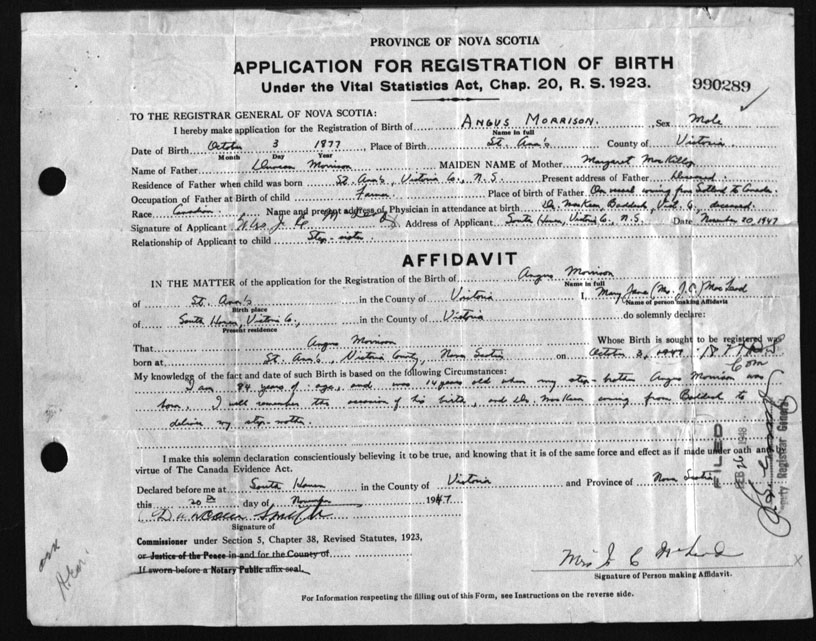 PROVINCE OF NOVA SCOTIA
APPLICATION FOR REGISTRATION OF BIRTH
Under the Vital Statistics Act, Chap. 20, R. S. 1923.
990289
TO THE REGISTRAR GENERAL OF NOVA SCOTIA:
I hereby make application for the Registration of Birth of ANGUS MORRISON. Sex Male
Name in full
Date of Birth October 3 1877 Place of Birth St. Ann's County of Victoria
Month Day Year
Name of Father Duncan Morrison MAIDEN NAME of Mother Margaret
Residence of Father when child was born St. Ann's, Victoria Co., N. S. Present address of Father Deceased.
Occupation of Father at Birth of child Farmer Place of birth of Father On vessel coming from Scotland to Canada.
Race Canadian Name and present address of Physician in attendance at birth Dr. MacKeen, Baddeck, Vict. Co., deceased.
Signature of Applicant Mrs J. C. Address of Applicant South Haven, Victoria Co., N. S. Date November 20, 1947
Relationship of Applicant to child Step-sister
AFFIDAVIT
IN THE MATTER of the application for the Registration of the Birth of Angus Morrison
Name in full
of St. Ann's in the County of Victoria I, Mary Jane (Mrs. J. C.) MacLeod
Birth place Name of person making Affidavit
of South Haven, Victoria Co., in the County of Victoria do solemnly declare:
Present residence
That Angus Morrison Whose Birth is sought to be registered was
born at St. Ann's, Victoria County, Nova Scotia on October 3, 1947
My knowledge of the fact and date of such Birth is based on the following Circumstances:
I am 84 years of age, and was 14 years old when my step-brother Angus Morrison was
born. I well remember the occasion of his birth, and Dr. MacKeen coming from Baddeck to
deliver my step-mother.
I make this solemn declaration conscientiously believing it to be true, and knowing that it is of the same force and effect as if made under oath and by
virtue of The Canada Evidence Act.
Declared before me at South Haven in the County of Victoria and Province of Nova Scotia
this 20th day of November 1947
Signature of
Commissioner under Section 5, Chapter 38, Revised Statutes, 1923,
or Justice of the Peace in and for the County of
If sworn before a Notary Public affix seal.
Mrs J C McLeod
Signature of Person making Affidavit.
For Information respecting the filling out of this Form, see Instructions on the reverse side.
FILED
FEB 26 1948
Deputy Registrar General